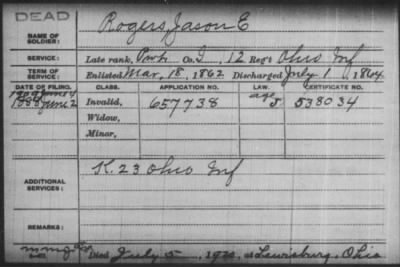 DEAD
NAME OF SOLDIER: Rogers, Jason E
SERVICE: Late rank, Co. G, 12 Reg't Ohio Inf
TERM OF SERVICE: Enlisted Mar. 18, 1862 Discharged July 1, 1864
DATE OF FILING. CLASS. APPLICATION NO. LAW. CERTIFICATE NO.
1888 June 2 Invalid, 657738 age 538034
Widow,
Minor,
ADDITIONAL SERVICES: K. 23 Ohio Inf
REMARKS:
Died July 5, at Lewisburg, Ohio